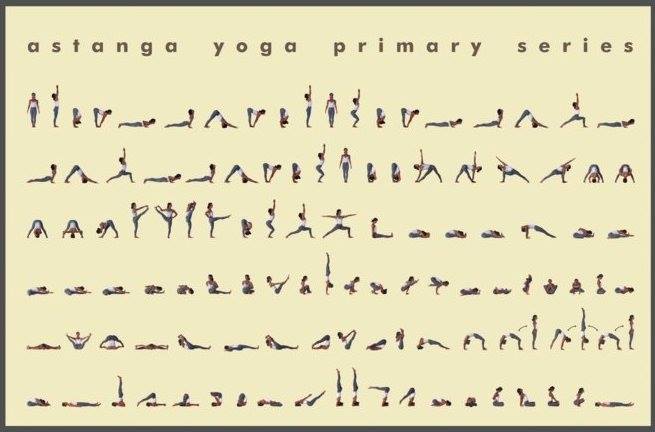 astanga yoga primary series